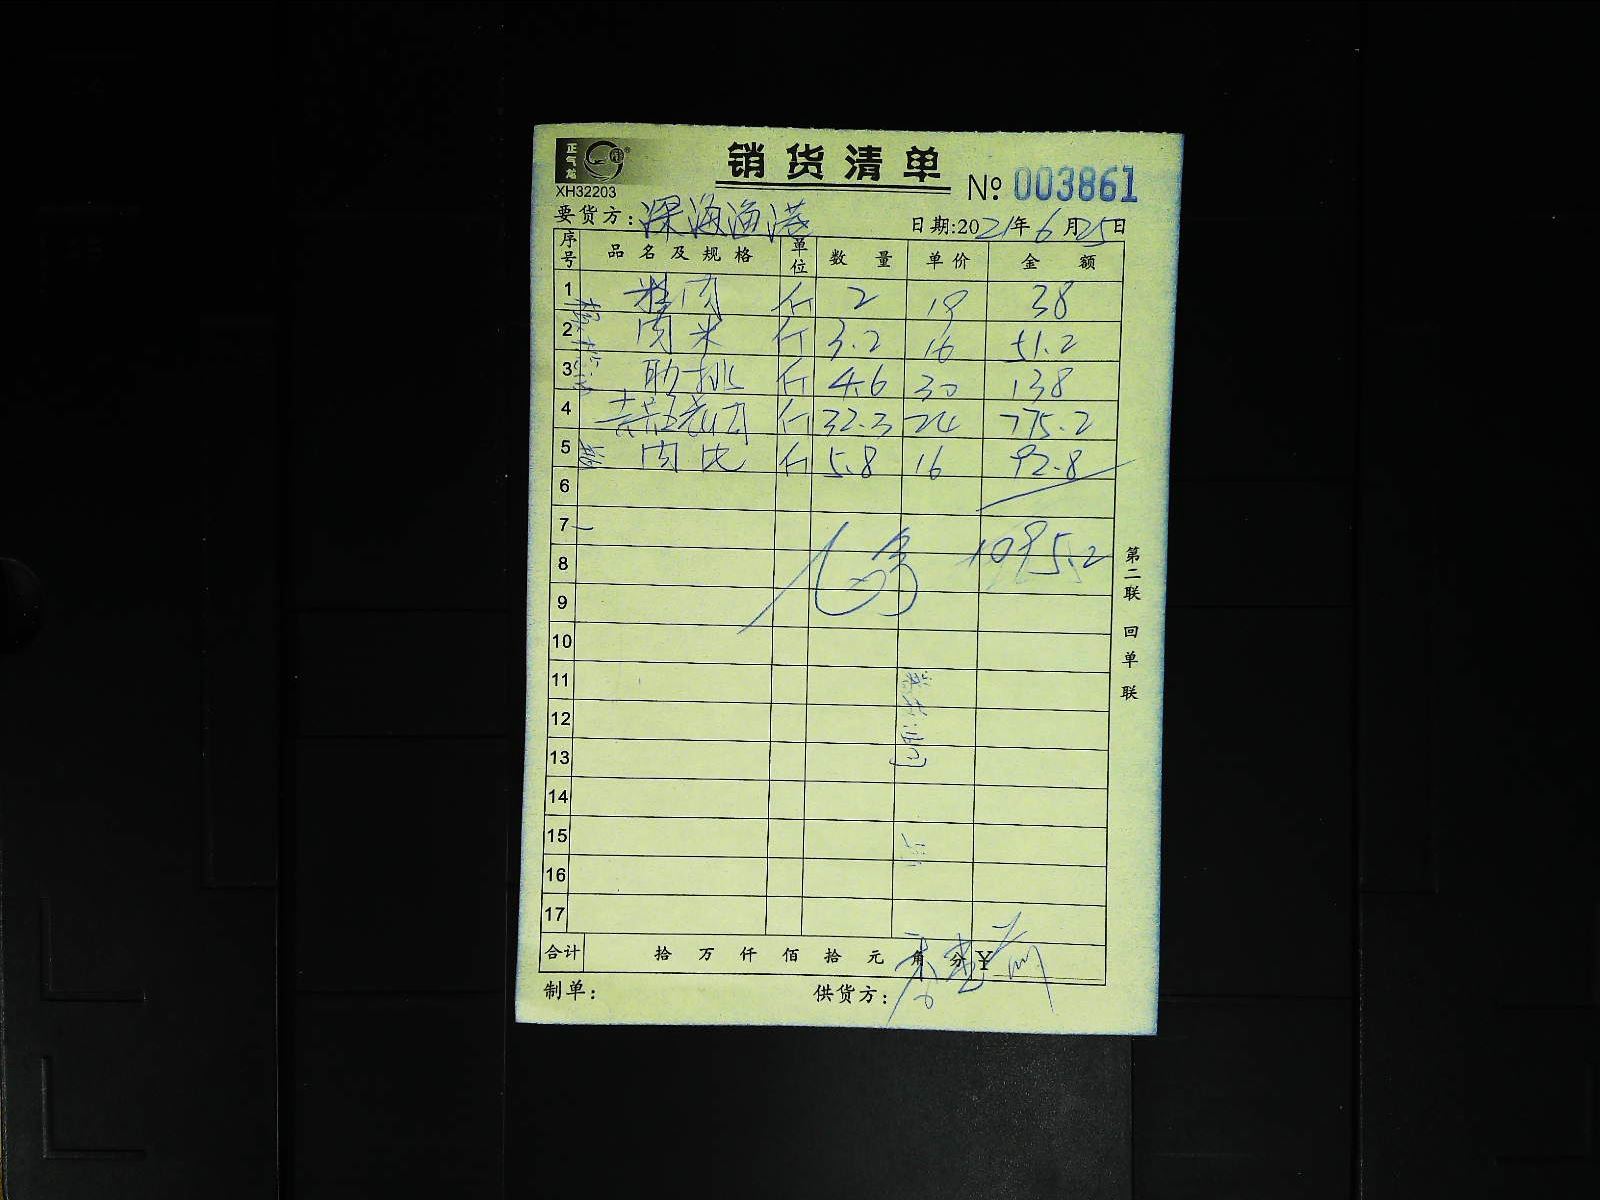 正气龙
销货清单
XH32203
№ 003861
要货方: 深海渔港 日期:2021年6月25日
序号 品名及规格 单位 数量 单价 金额
1 精肉 斤 2 19 38
2 肉米 斤 3.2 16 51.2
3 肋排 斤 4.6 30 138
4 斤 32.3 24 775.2
5 肉 斤 5.8 16 92.8
6
7 1095.2
8
9
10
11
12
13
14
15
16
17
合计 拾 万 仟 佰 拾 元 角 分 ¥
制单: 供货方:
第二联 回单联